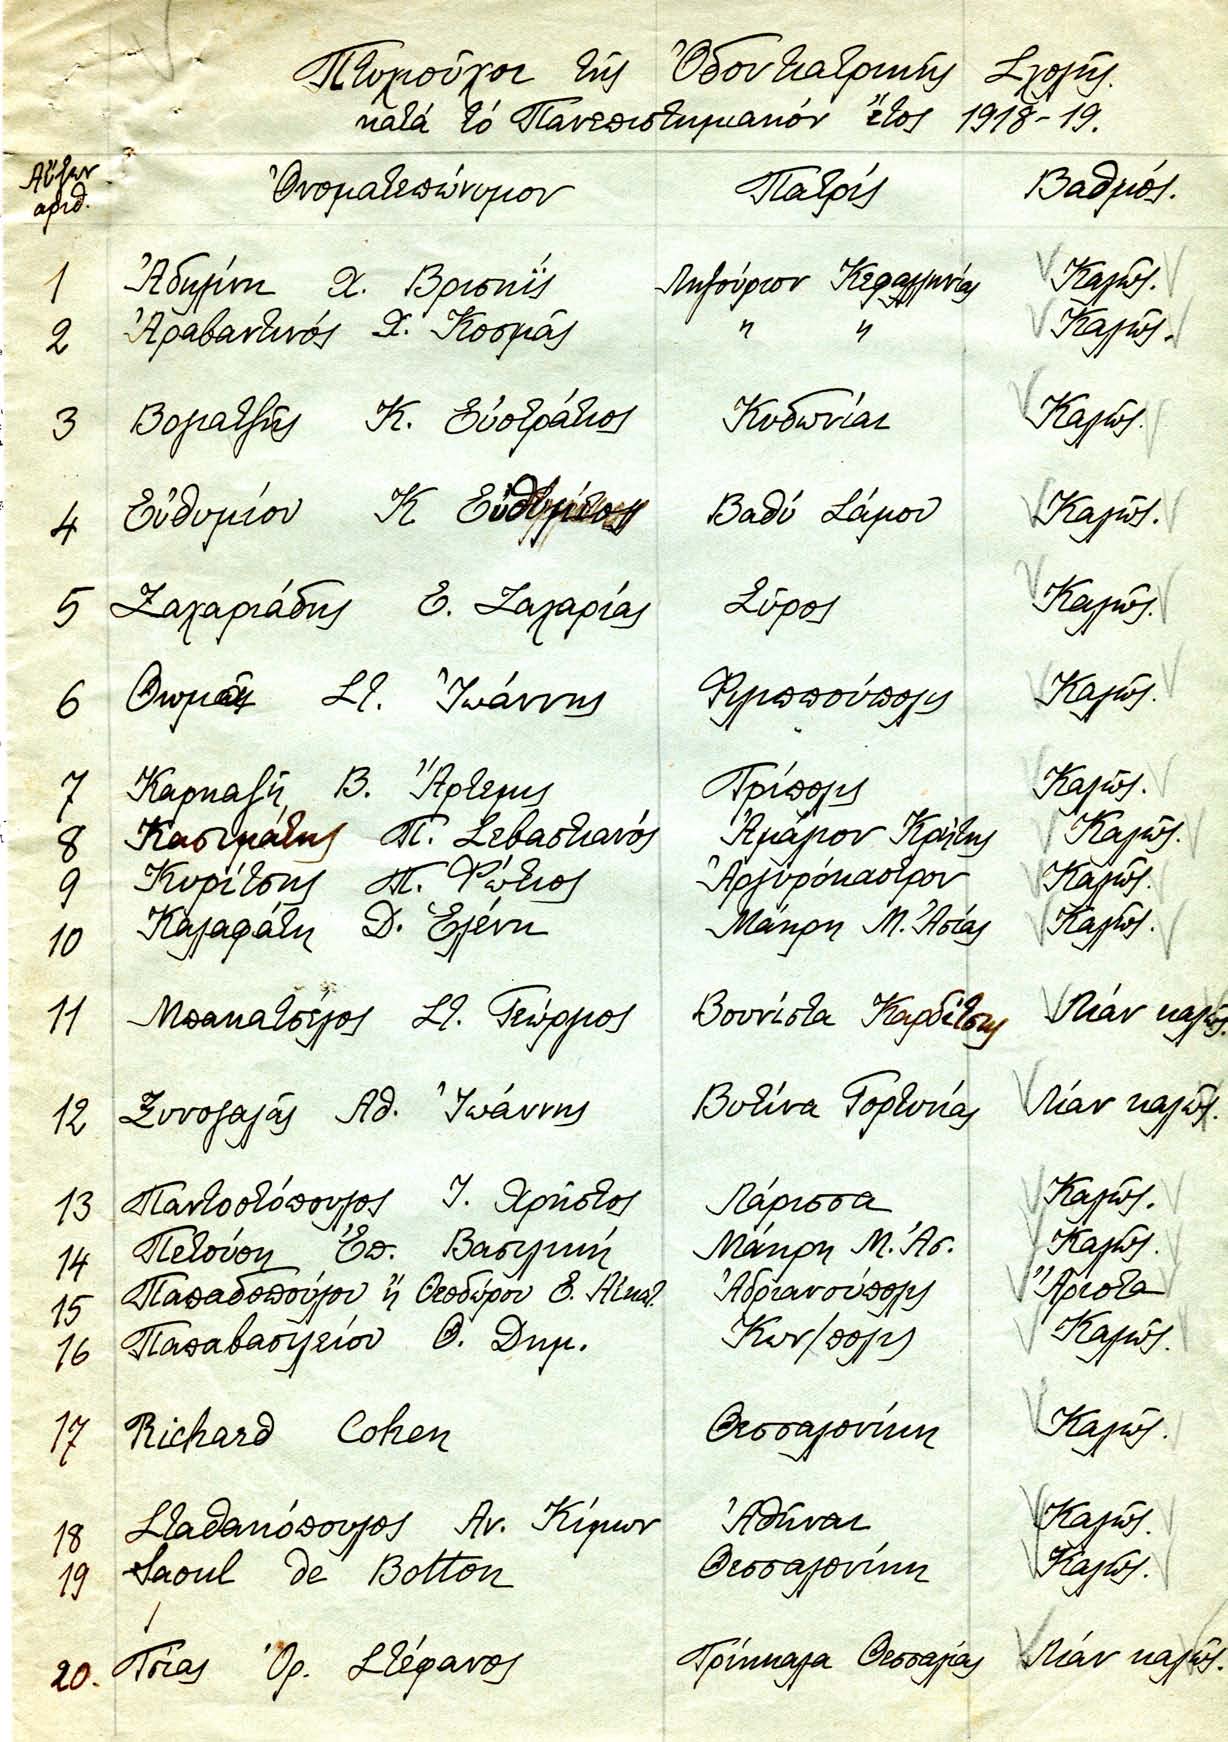 Πτυχιοῦχοι τῆς Ὀδοντιατρικῆς Σχολῆς.
κατά τό Πανεπιστημιακόν ἔτος 1918-19.
Αὔξων Ὀνοματεπώνυμον Πατρίς Βαθμός.
αριθ.
1 Χ. Βρισηΐς Ληξούριον Κεφαλληνίας Καλῶς.
2 Ἀραβαντινός Χ. Κοσμᾶς " " Καλῶς.
3 Βολατζῆς Κ. Εὐστράτιος Κυδωνίαι Καλῶς.
4 Εὐθυμίου Κ Εὐθύμιος Βαθύ Σάμου Καλῶς.
5 Ζαχαριάδης Ε. Ζαχαρίας Σῦρος Καλῶς.
6 Στ. Ἰωάννης Φιλιππούπολις Καλῶς.
7 Καρκαζῆ Β. Ἄρτεμις Τρίπολις Καλῶς.
8 Κασιμάτης Π. Σεβαστιανός Ἀμάριον Κρήτης Καλῶς.
9 Κυρίτσης Π. Φώτιος Ἀργυρόκαστρον Καλῶς.
10 Καλαφάτη Δ. Ἑλένη Μάκρη Μ. Ἀσίας Καλῶς.
11 Μπακατσέλος Στ. Γεώργιος Βουνίστα Καρδίτσης Λίαν καλῶς.
12 Ξυνογαλᾶς Αθ. Ἰωάννης Βυτίνα Γορτυνίας Λίαν καλῶς.
13 Παντοστόπουλος Ι. Χρῆστος Λάρισσα Καλῶς.
14 Πετσούση Ἐπ. Βασιλική Μάκρη Μ. Ἀσ. Καλῶς.
15 Παπαδοπούλου ἤ Θεοδώρου Ε. Αἰκατ. Ἀδριανούπολις Ἄριστα
16 Παπαβασιλείου Θ. Δημ. Κων/πολις Καλῶς.
17 Richard Cohen Θεσσαλονίκη Καλῶς.
18 Σταθακόπουλος Αν. Κίμων Ἀθῆναι Καλῶς.
19 Saoul de Botton Θεσσαλονίκη Καλῶς.
20. Τσίας Ὀρ. Στέφανος Τρίκκαλα Θεσσαλίας Λίαν καλῶς.